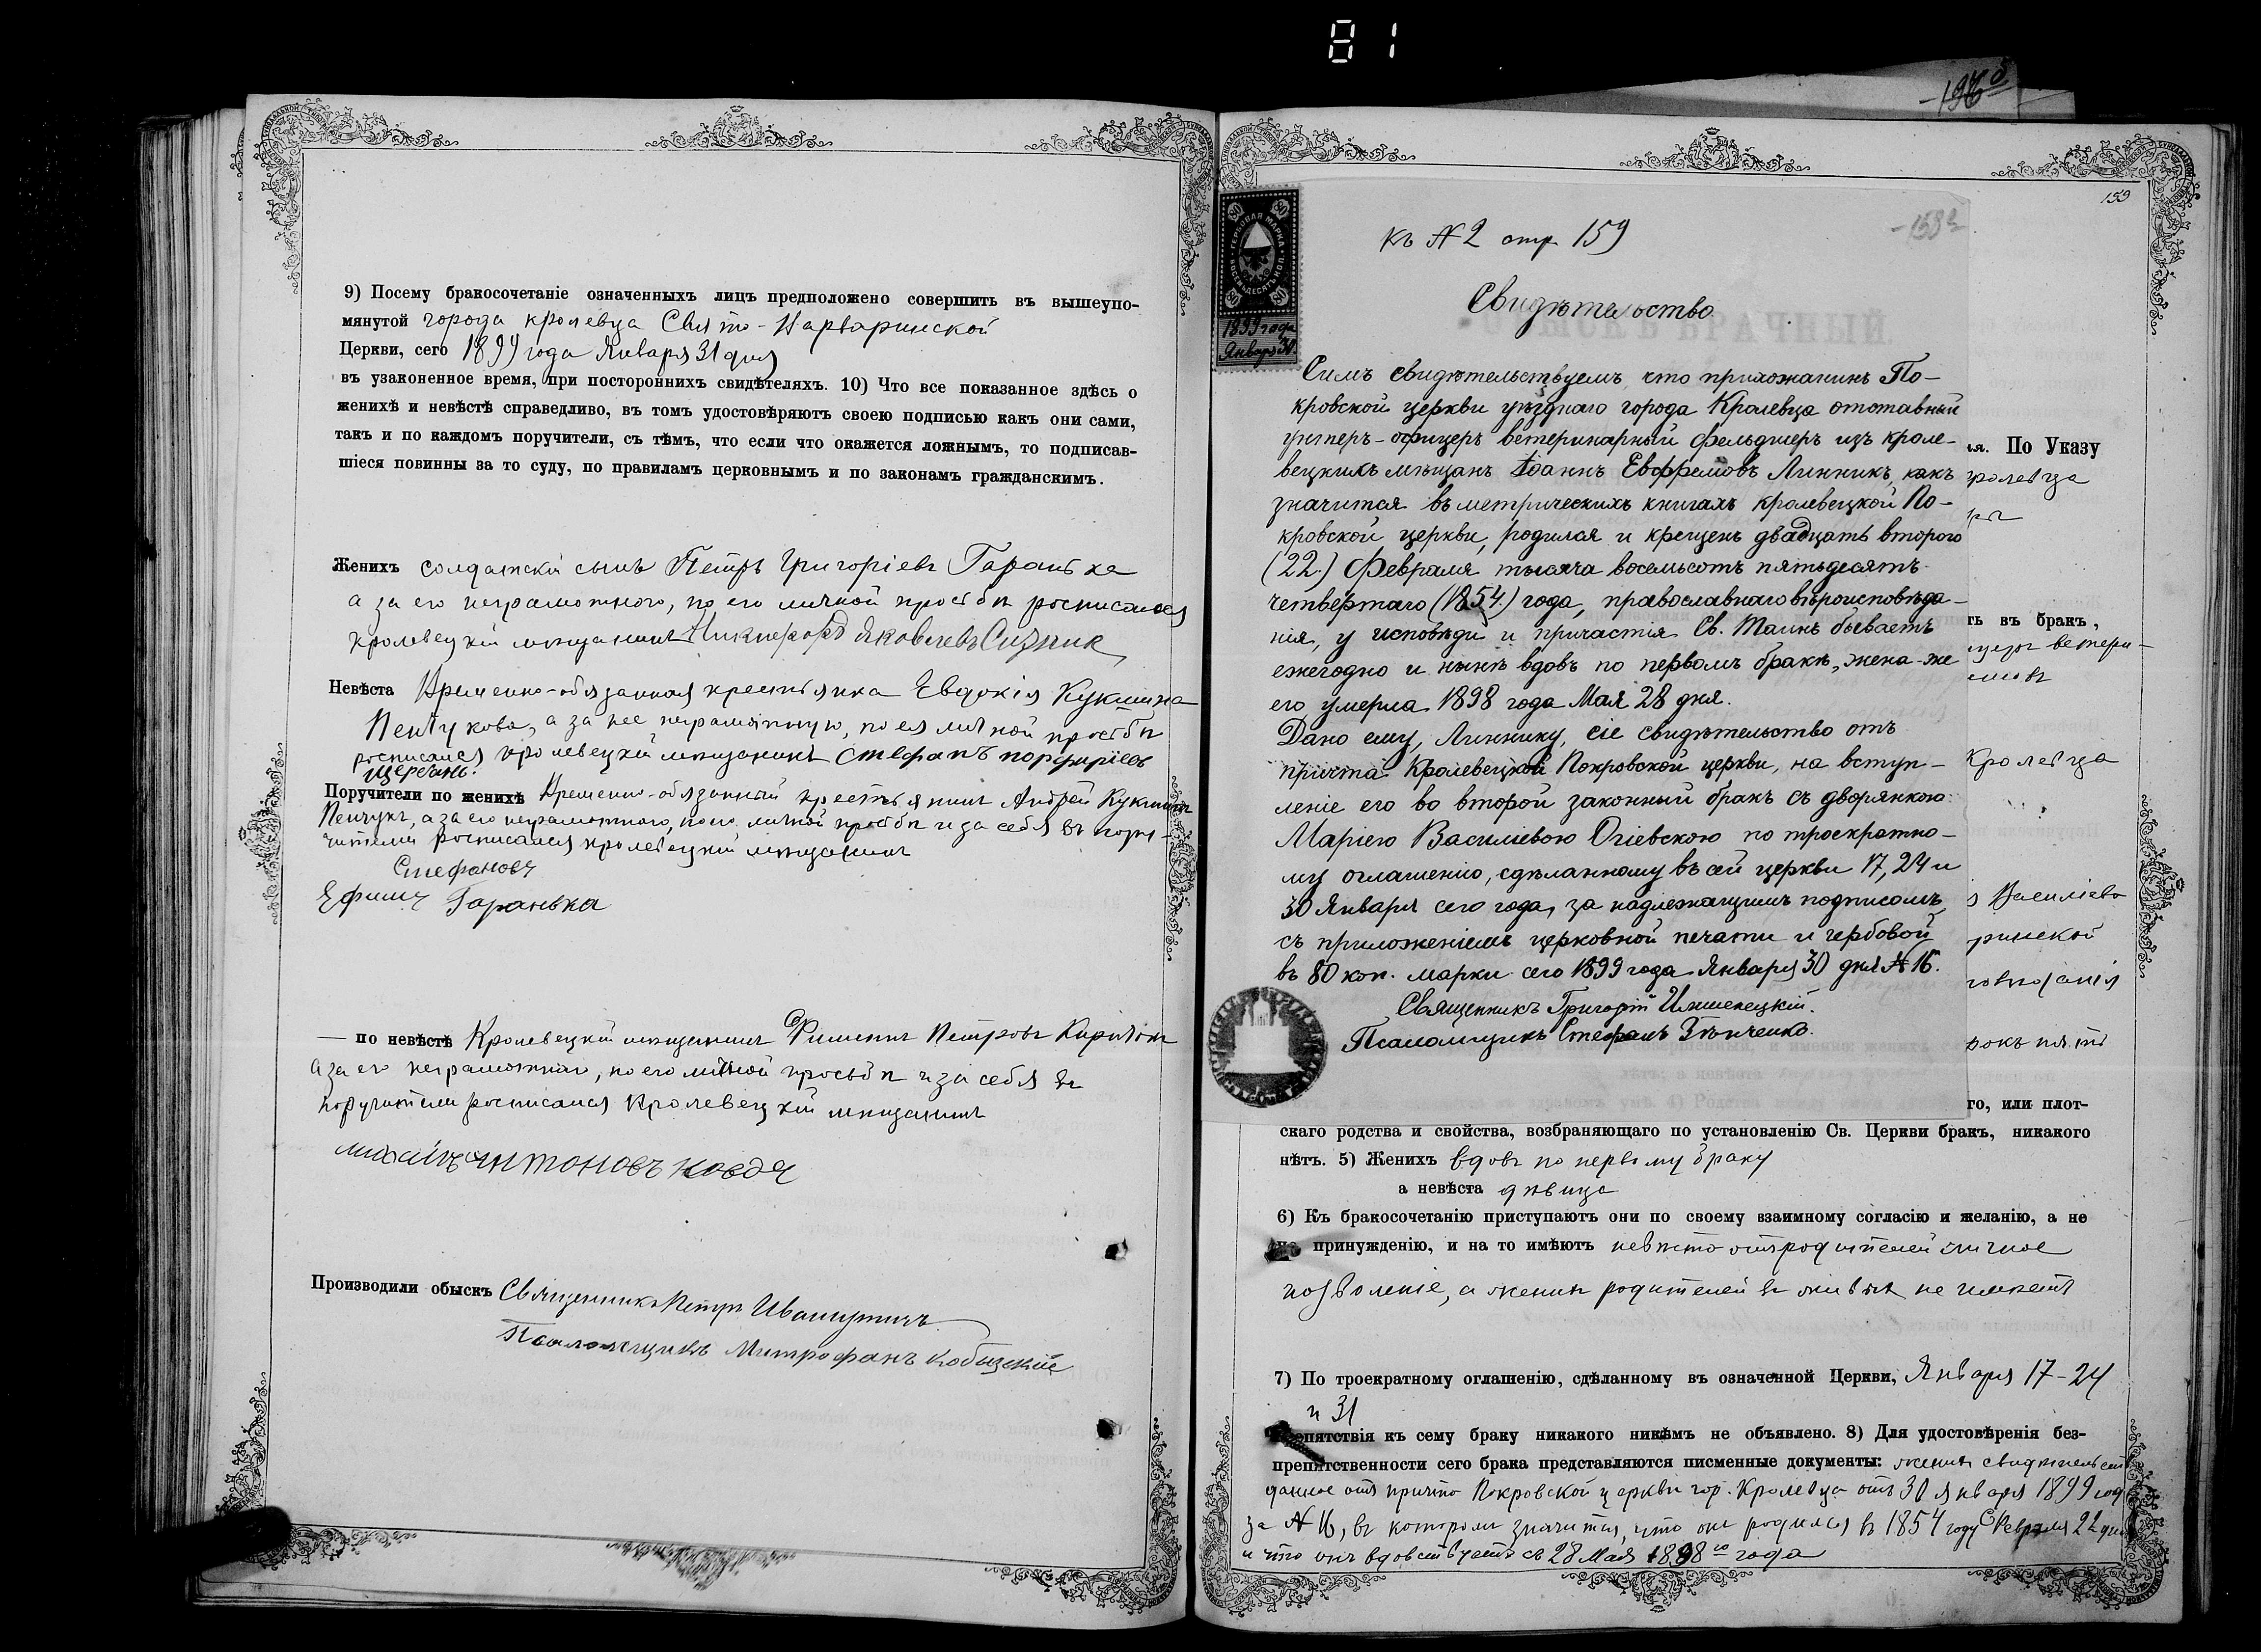 81
9) Посему бракосочетаніе означенныхъ лицъ предположено совершить въ вышеупо-
мянутой города Кролевца Свято-Варваринской
Церкви, сего 1899 года Января 31 дня
въ узаконенное время, при постороннихъ свидѣтеляхъ. 10) Что все показанное здѣсь о
женихѣ и невѣстѣ справедливо, въ томъ удостовѣряютъ своею подписью какъ они сами,
такъ и по каждомъ поручители, съ тѣмъ, что если что окажется ложнымъ, то подписав-
шіеся повинны за то суду, по правиламъ церковнымъ и по законамъ гражданскимъ.
Женихъ солдатскій сынъ Петръ Григоріевъ Гаранька
а за его неграмотного, по его личной просьбѣ росписался
кролевецкій мѣщанинъ Никифоръ Яковлевъ
Невѣста Временно-обязанная крестьянка Евдокія Кукшина
а за нее неграмотную, по ея личной просьбѣ
росписался кролевецкій мѣщанинъ Стефанъ Порфиріевъ
Поручители по женихѣ Временно-обязанный крестьянинъ Андрей
а за его неграмотного, по его личной просьбѣ и за себя въ пору-
чители росписался кролевецкій мѣщанинъ
Стефановъ
Ефимъ Гаранька
— по невѣстѣ Кролевецкій мѣщанинъ Петровъ
а за его неграмотного, по его личной просьбѣ и за себя въ
поручители росписался Кролевецкій мѣщанинъ
Антоновъ
Производили обыскъ Священникъ Петръ
Псаломщикъ Митрофанъ
-159²
159
Къ № 2 стр 159
ГЕРБОВАЯ МАРКА
ВОСЕМЬДЕСЯТЪ КОП.
80
1899 года
Январ 30
Свидѣтельство
Симъ свидѣтельствуемъ, что прихожанинъ По-
кровской церкви уѣзднаго города Кролевца отставный
унтеръ-офицеръ ветеринарный фельдшеръ изъ кроле-
вецкихъ мѣщанъ Іоаннъ Евфремовъ Линникъ, какъ
значится въ метрическихъ книгахъ кролевецкой По-
кровской церкви, родился и крещенъ двадцать второго
(22.) Февраля тысяча восемьсотъ пятьдесятъ
четвертаго (1854.) года, православнаго вѣроисповѣда-
нія, у исповѣди и причастія Св. Таинъ бываетъ
ежегодно и нынѣ вдовъ по первомъ бракѣ, жена-же
его умерла 1898 года Мая 28 дня.
Дано ему, Линнику, сіе свидѣтельство отъ
причта Кролевецкой Покровской церкви, на вступ-
леніе его во второй законный бракъ съ дворянкою
Маріею Василіевою Огіевскою по троекратно-
му оглашенію, сдѣланному въ сей церкви 17, 24 и
30 Января сего года, за надлежащимъ подписомъ,
съ приложеніемъ церковной печати и гербовой
въ 80 коп. марки сего 1899 года Января 30 дня № 16.
Священникъ Григорій
Псаломщикъ Стефанъ
ія. По Указу
ролевца
ть въ бракъ,
ицеръ ветери-
емовъ
Кролевца
Василіева
ринской
рокъ пять
го, или плот-
скаго родства и свойства, возбраняющаго по установленію Св. Церкви бракъ, никакого
нѣтъ. 5) Женихъ вдовъ по первому браку
а невѣста дѣвица
6) Къ бракосочетанію приступаютъ они по своему взаимному согласію и желанію, а не
по принужденію, и на то имѣютъ невѣста отъ родителей личное
позволеніе, а женихъ родителей въ живыхъ не имѣетъ
7) По троекратному оглашенію, сдѣланному въ означенной Церкви, Января 17-24
и 31
препятствія къ сему браку никакого никѣмъ не объявлено. 8) Для удостовѣренія без-
препятственности сего брака представляются писменные документы: жених свидѣтельст
данное отъ причта Покровской церкви гор. Кролевца отъ 30 января 1899 год
за № 16, въ которомъ значится, что онъ родился въ 1854 году Февраля 22 дня
и что онъ вдовствуетъ съ 28 Мая 1898 го года